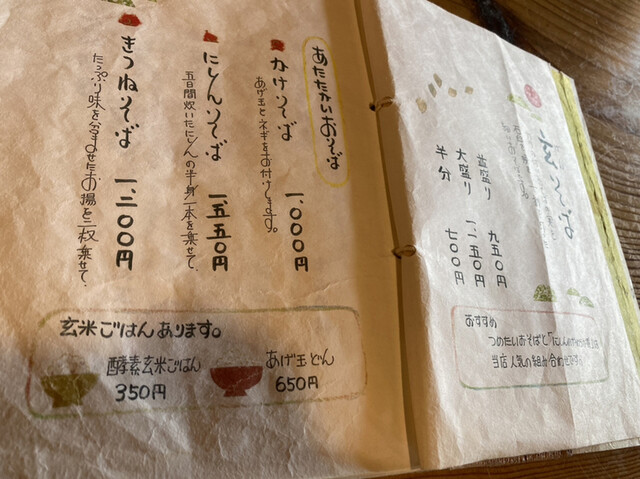 玄そば
並盛り 九五〇円
大盛り 一、一五〇円
半分 七〇〇円
おすすめ
つめたいおそばと「にしんの
当店 人気の組み合わせです。
あたたかいおそば
かけそば 一、〇〇〇円
あげ玉とネギをお付けします。
にしんそば 一、五五〇円
五日間炊いたにしんの半身一本を乗せて、
きつねそば 一、三〇〇円
たっぷり味を含ませたお揚を三枚乗せて、
玄米ごはんあります。
酵素玄米ごはん
350円
あげ玉どん
650円